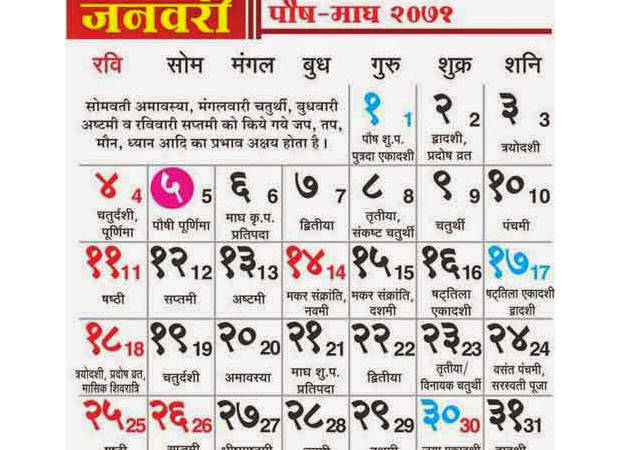 जनवरी पौष-माघ २०७१
रवि सोम मंगल बुध गुरु शुक्र शनि
सोमवती अमावस्या, मंगलवारी चतुर्थी, बुधवारी
अष्टमी व रविवारी सप्तमी को किये गये जप, तप,
मौन, ध्यान आदि का प्रभाव अक्षय होता है।
१ 1 २ 2 ३ 3
पौष शु.प. द्वादशी, त्रयोदशी
पुत्रदा एकादशी प्रदोष व्रत
४ 4 ५ 5 ६ 6 ७ 7 ८ 8 ९ 9 १० 10
चतुर्दशी, पौषी पूर्णिमा माघ कृ.प. द्वितीया तृतीया, चतुर्थी पंचमी
पूर्णिमा प्रतिपदा संकष्ट चतुर्थी
११ 11 १२ 12 १३ 13 १४ 14 १५ 15 १६ 16 १७ 17
षष्ठी सप्तमी अष्टमी मकर संक्रांति, मकर संक्रांति, षट्तिला षट्तिला एकादशी
नवमी दशमी एकादशी द्वादशी
१८ 18 १९ 19 २० 20 २१ 21 २२ 22 २३ 23 २४ 24
त्रयोदशी, प्रदोष व्रत, चतुर्दशी अमावस्या माघ शु.प. द्वितीया तृतीया/ वसंत पंचमी,
मासिक शिवरात्रि प्रतिपदा विनायक चतुर्थी सरस्वती पूजा
२५ 25 २६ 26 २७ 27 २८ 28 २९ 29 ३० 30 ३१ 31